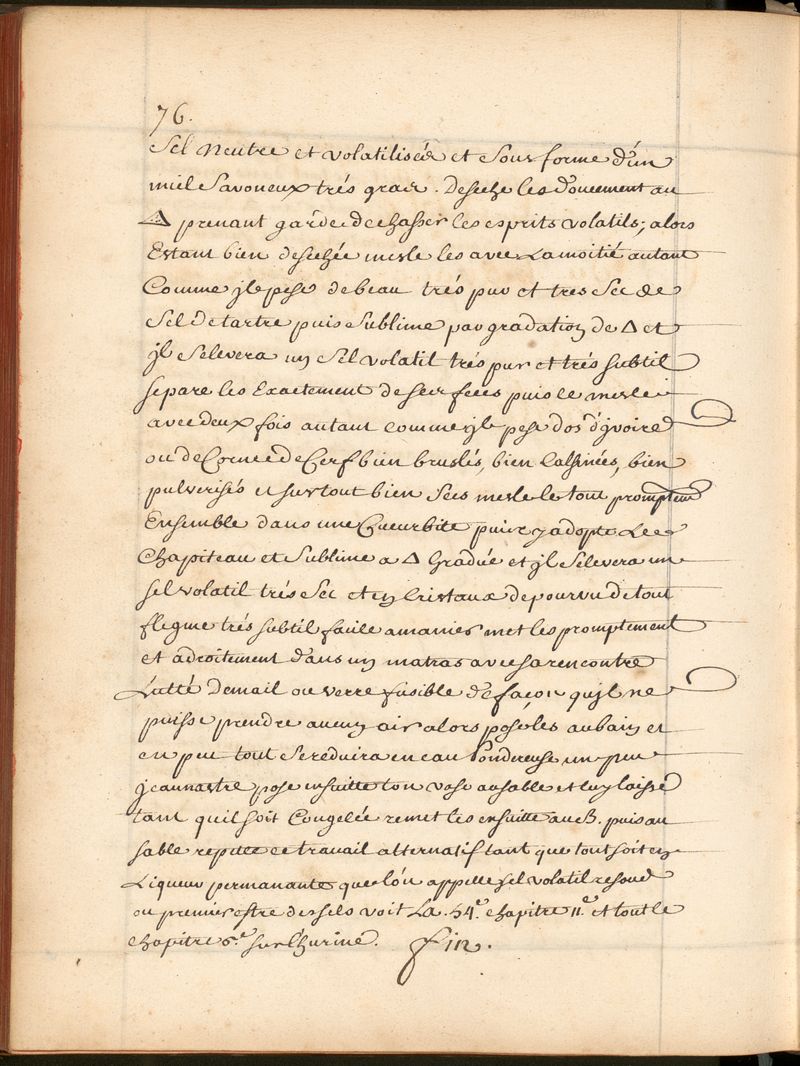 76.
Sel Neutre et volatilisée et sous forme d'un
miel savoneux trés gras. Deseche les doucement au
△ prenant garde de chasser les esprits volatils; alors
Estant bien desechée mesle les avec La moitié autant
Comme jl pese de beau trés pur et tres sec de
Sel de tartre puis sublime par gradation de △ et
jl s'elevera un sel volatil trés pur et trés subtil
separe les Exactement de ses feces puis le mesle
avec deux fois autant comme jl pese d'os d'yvoire
ou de Corne de Cerf bien bruslés, bien Calsinées, bien
pulverisés et sur tout bien secs mesle le tout promptemt
Ensemble dans une Cucurbite puis y adopte Le
Chapiteau et sublime a △ Gradué et jl s'elevera un
sel volatil trés sec et en Cristaux depourvu de tout
flegme trés subtil facile a manier met les promptement
et adroitement dans un matras avec sa rencontre
Lutté d'email ou verre fusible de façon qu'jl ne
puisse prendre aucun air alors pose les au bain et
en peu tout se reduira en eau Pondereuse un peu
jeaunastre pose ensuitte ton vase au sable et luy laisse
tant qu'il soit Congelée remet les ensuitte au B. puis au
sable repette ce travail alternatif tant que tout soit en
Liqueur permanante que l'on appelle sel volatil resoud
ou premier estre des sels voit La. 54.e chapitre 11.e et tout le
chapitre 6.e sur l'hurine. fin.